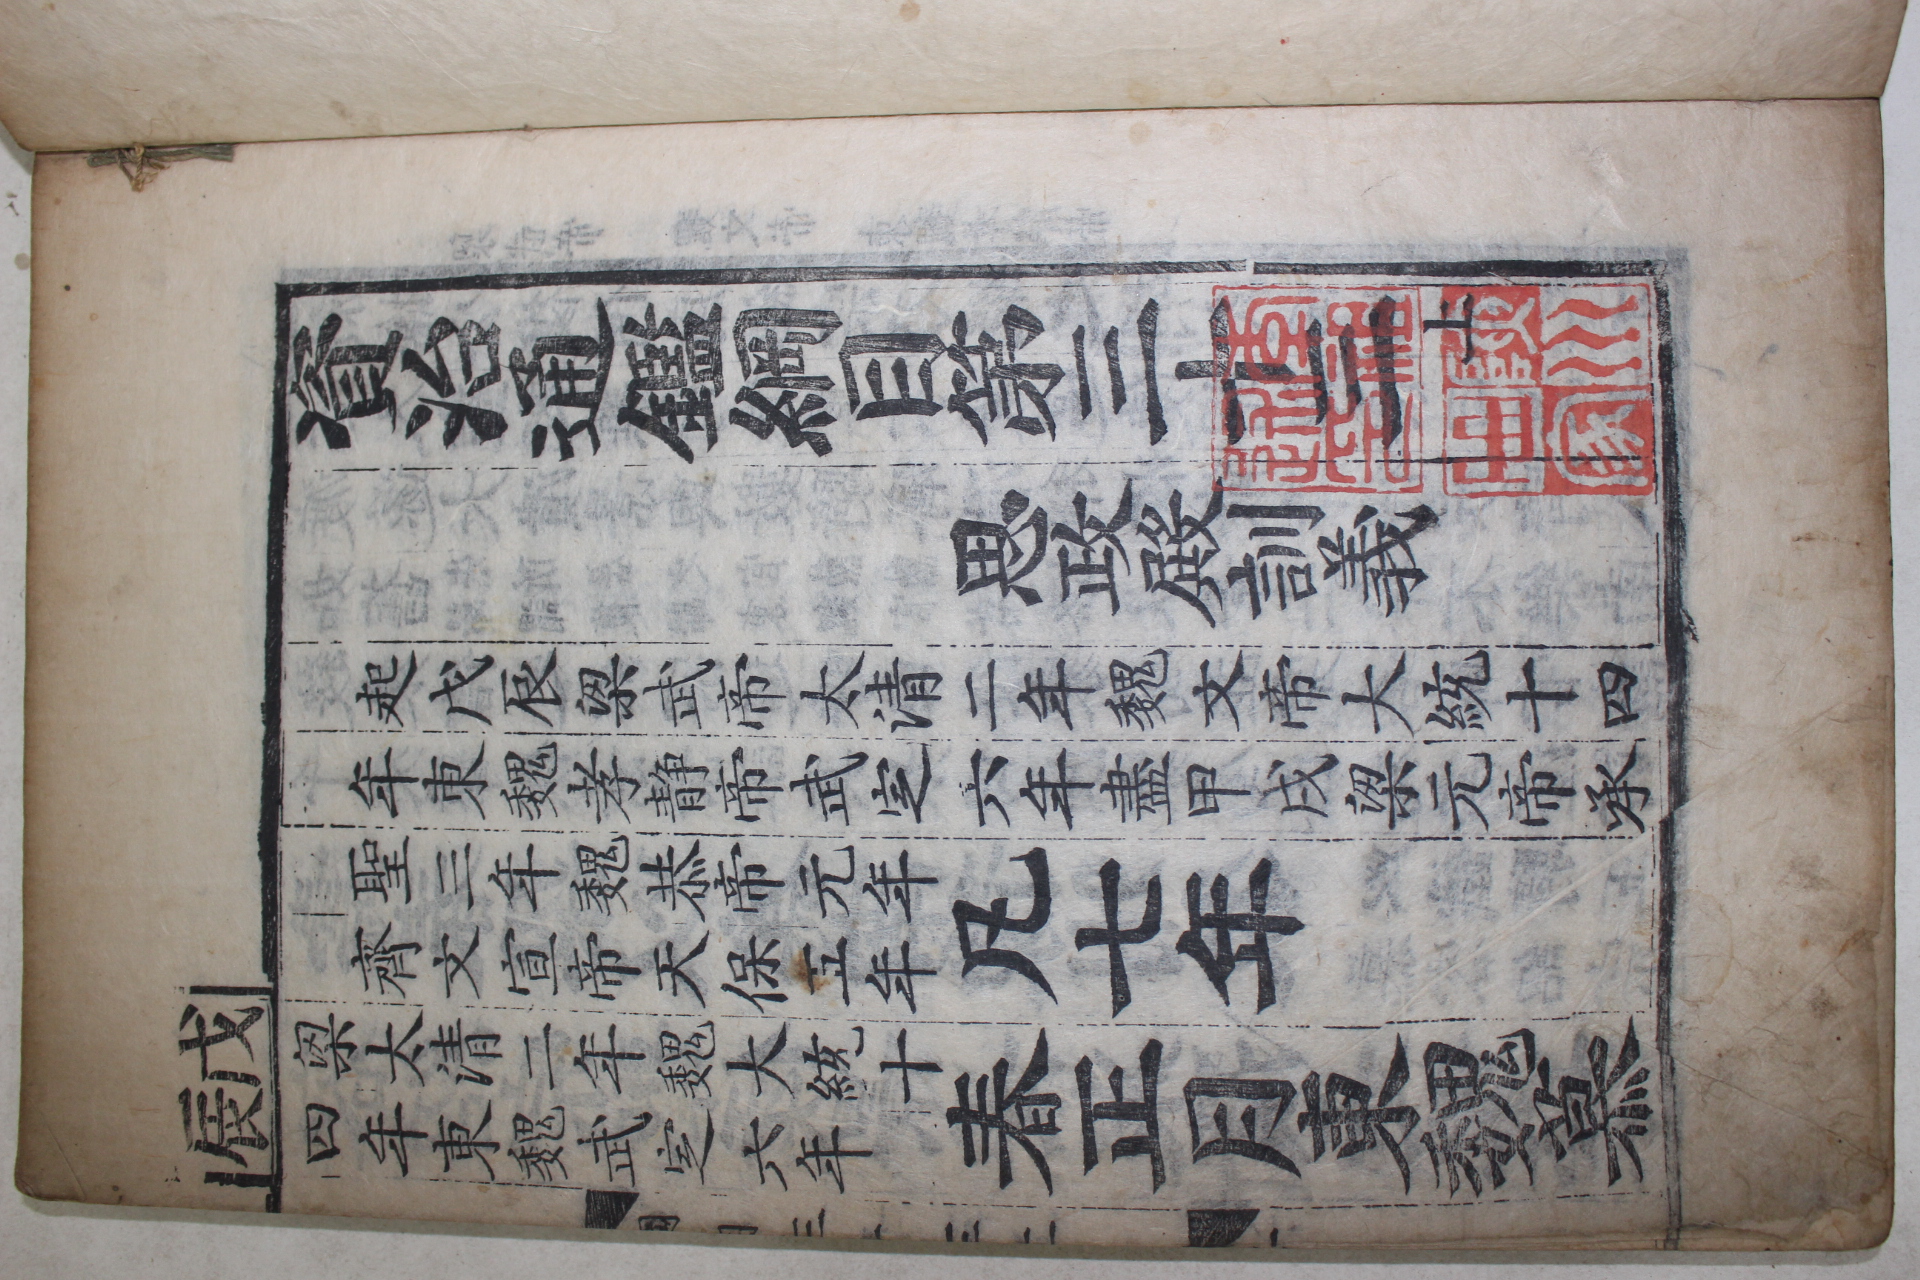 資治通鑑綱目第三十三上
思政殿訓義
起戊辰梁武帝太清二年魏文帝大統十四
年東魏孝靜帝武定六年盡甲戌梁元帝承
聖三年魏恭帝元年
齊文宣帝天保五年
凡七年
戊辰
梁太清二年魏大統十
四年東魏武定六年
春正月東魏慕
陜川世家